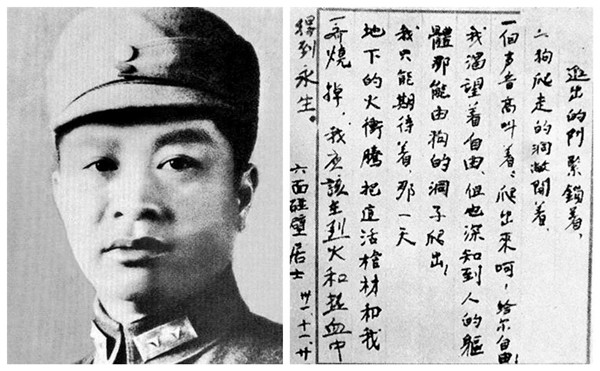 進出的門緊鎖着、
狗爬走的洞敞開着、
一個声音高叫着。爬出來呵，給尔自由!
我渴望着自由、但也深知到人的軀
體那能由狗的洞子爬出!
我只能期待着、那一天
地下的火衝騰把這活棺材和我
一齊燒掉，我应該在烈火和熱血中
得到永生。
六面碰壁居士 卅一.十一.廿